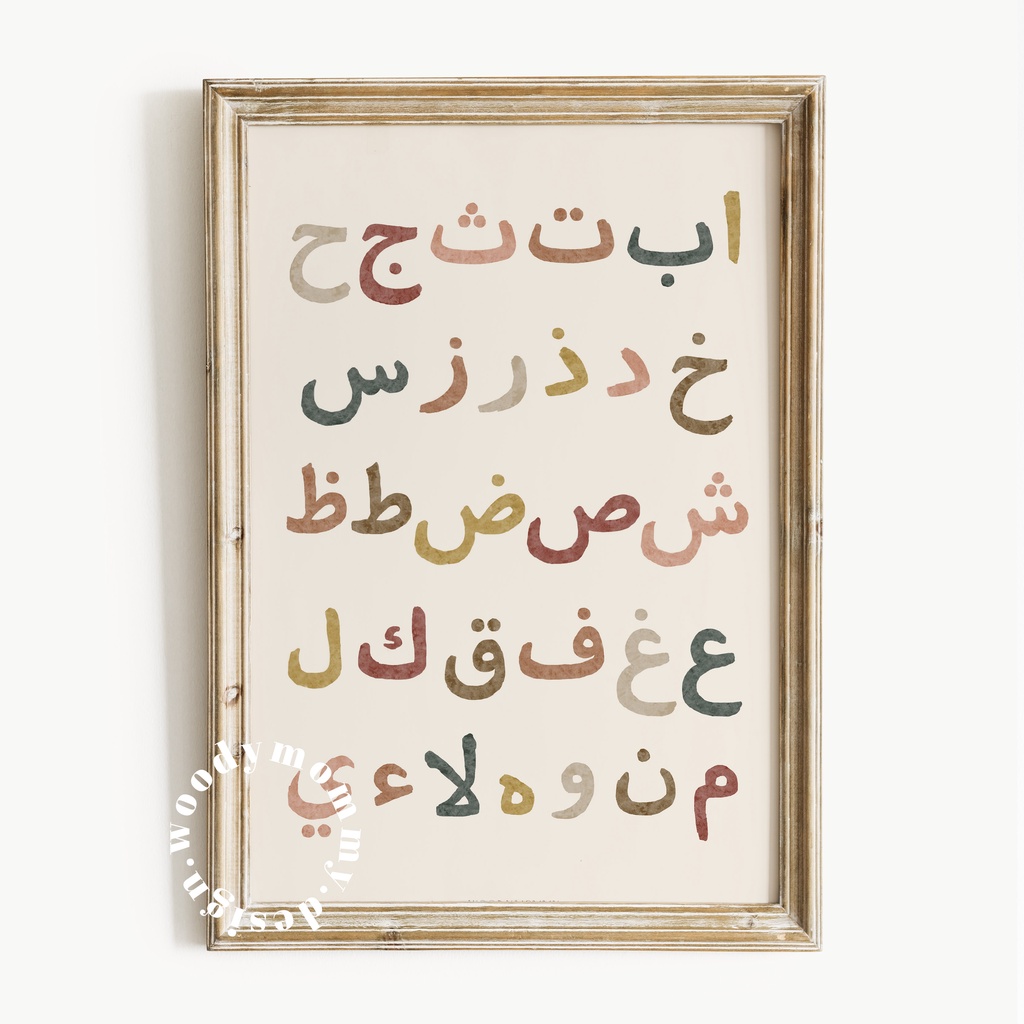 ا ب ت ث ج ح
خ د ذ ر ز س
ش ص ض ط ظ
ع غ ف ق ك ل
م ن و ه لا ء ي
woodymommy.design.